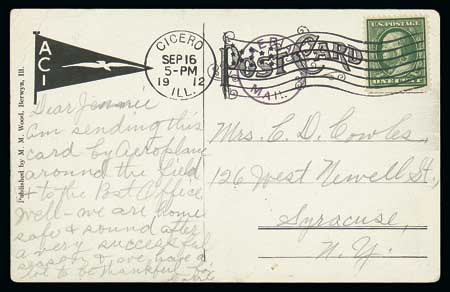 ACI
CICERO
SEP 16
5-PM
1912
ILL.
POST CARD
AERO
MAIL
U.S. POSTAGE
Published by M. M. Wood, Berwyn, Ill.
Dear Jennie
Am sending this
card by Aeroplane
around the field
+ to the Post Office
Well - we are home
safe & sound after
a very successful
season & we have a
lot to be thankful for
Mrs. C. D. Cowles,
126 West Newell St,
Syracuse,
N.Y.